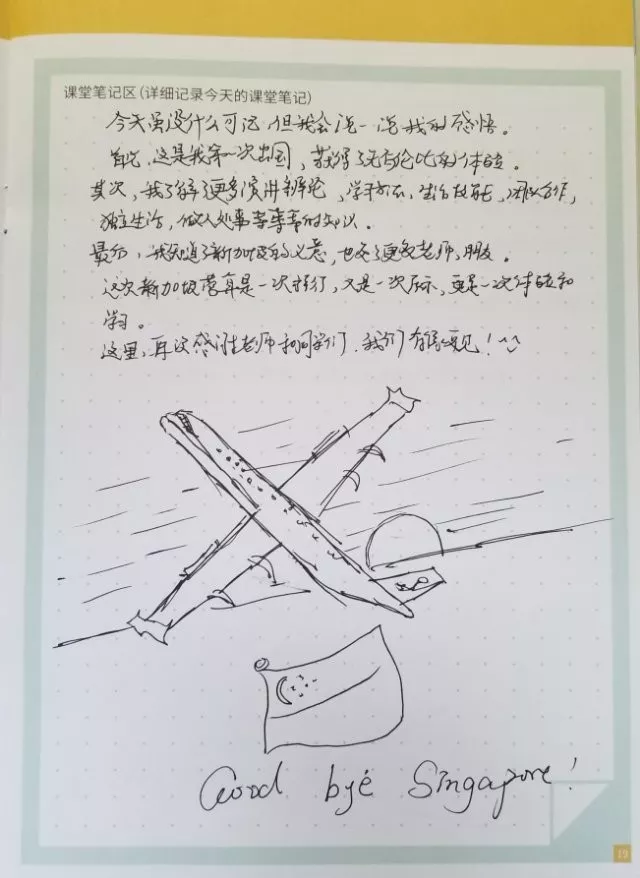 课堂笔记区(详细记录今天的课堂笔记)
今天虽没什么可记,但我会说一说我的感悟。
首先,这是我第一次出国,获得了无与伦比的体验。
其次,我了解了更多演讲辩论,学习方式,生活技能,团队合作,
独立生活,做人处事等等等的知识。
最后,我知道了新加坡的义意,也交了更多老师,朋友。
这次新加坡营真是一次旅行,又是一次启示,更是一次体验和
学习。
这里,再次感谢老师和同学们,我们有缘再见!^^
Good bye Singapore!
19